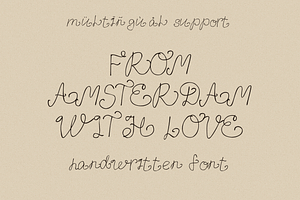 multilingual support
FROM
AMSTERDAM
WITH LOVE
handwritten font